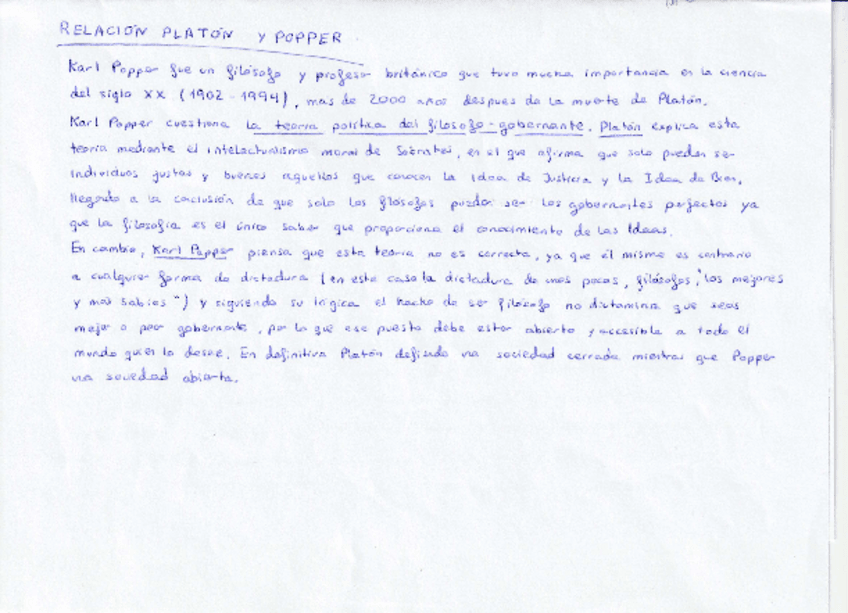 RELACIÓN PLATÓN Y POPPER
Karl Popper fue un filósofo y profesor británico que tuvo mucha importancia en la ciencia
del siglo XX (1902-1994), mas de 2000 años despues de la muerte de Platón.
Karl Popper cuestiona la teoria política del filosofo-gobernante. Platón explica esta
teoría mediante el intelectualismo moral de Sócrates, en el que afirma que solo pueden ser
individuos justos y buenos aquellos que conocen la Idea de Justicia y la Idea de Bien,
llegando a la conclusión de que solo los filósofos pueden ser los gobernantes perfectos ya
que la filosofía es el único saber que proporciona el conocimiento de las Ideas.
En cambio, Karl Popper piensa que esta teoría no es correcta, ya que él mismo es contrario
a cualquier forma de dictadura (en este caso la dictadura de unos pocos, filósofos, "los mejores
y mas sabios") y siguiendo su lógica el hecho de ser filósofo no dictamina que seas
mejor o peor gobernante, por lo que ese puesto debe estar abierto y accesible a todo el
mundo quien lo desee. En definitiva Platón defiende una sociedad cerrada mientras que Popper
una sociedad abierta.